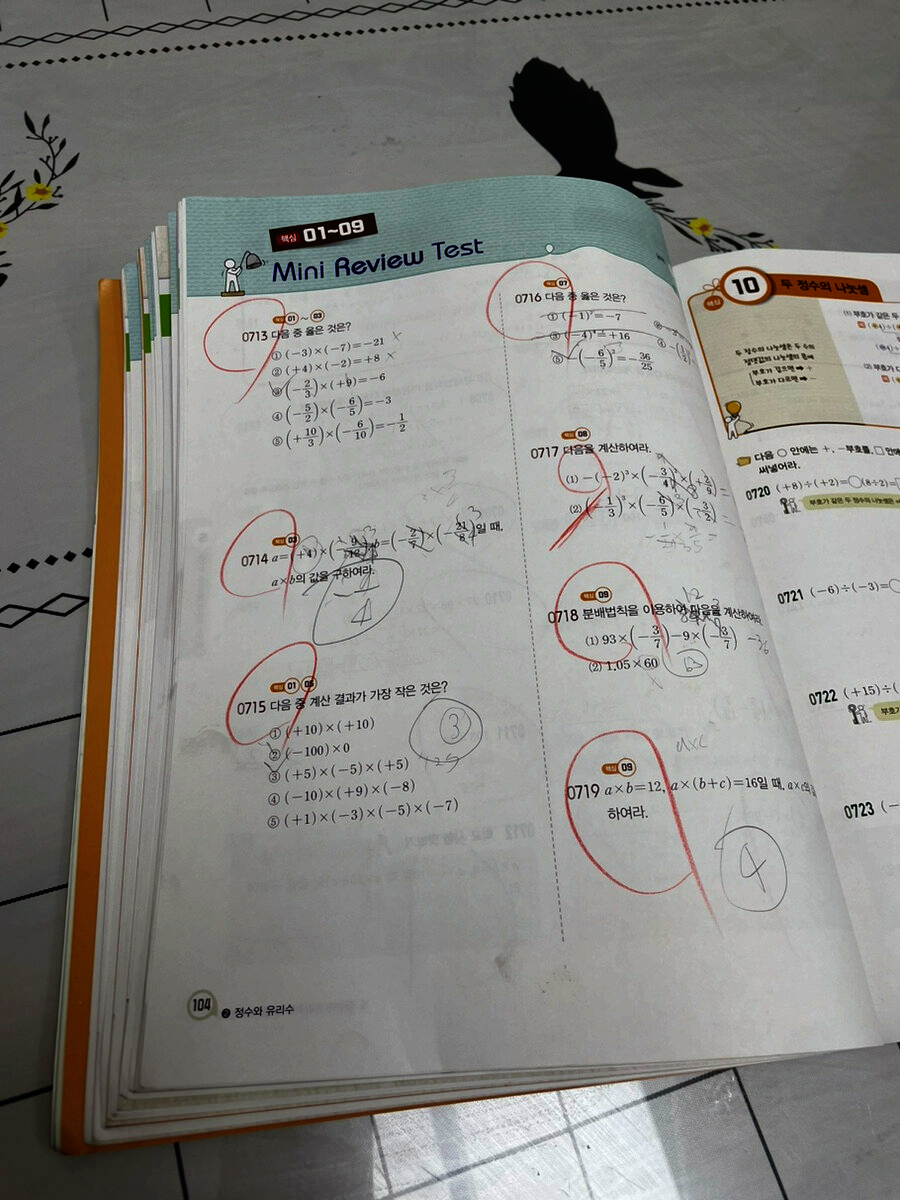 핵심 01~09
Mini Review Test
핵심 01 ~ 03
0713 다음 중 옳은 것은?
① (-3)×(-7)=-21 ×
② (+4)×(-2)=+8 ×
③ (-2/3)×(+9)=-6
④ (-5/2)×(-6/5)=-3
⑤ (+10/3)×(-6/10)=-1/2
핵심 03
0714 a=(+4)×(-9/12), b=(-2/7)×(-21/8)일 때,
a×b의 값을 구하여라.
핵심 01 05
0715 다음 중 계산 결과가 가장 작은 것은?
① (+10)×(+10)
② (-100)×0
③ (+5)×(-5)×(+5)
④ (-10)×(+9)×(-8)
⑤ (+1)×(-3)×(-5)×(-7)
③
104 ❷ 정수와 유리수
핵심 07
0716 다음 중 옳은 것은?
① (-1)⁷=-7
③ (-4)⁴=+16
⑤ -(-6/5)²=-36/25
핵심 08
0717 다음을 계산하여라.
(1) -(-2)³×(-3/4)²×(+2/9)
(2) (-1/3)³×(-6/5)²×(-3/2)
핵심 09
0718 분배법칙을 이용하여 다음을 계산하여라.
(1) 93×(-3/7)-9×(-3/7) -36
(2) 1.05×60 63
핵심 09
a×c
0719 a×b=12, a×(b+c)=16일 때, a×c의
하여라.
4
핵심 10 두 정수의 나눗셈
(1) 부호가 같은 두
두 정수의 나눗셈은 두 수의
절댓값의 나눗셈의 몫에
부호가 같으면 ➡ +
부호가 다르면 ➡ -
다음 ○ 안에는 +, -부호를, □ 안에
써넣어라.
0720 (+8)÷(+2)=○(8÷2)=
부호가 같은 두 정수의 나눗셈은
0721 (-6)÷(-3)=○
0722 (+15)÷(
부호가
0723 (-